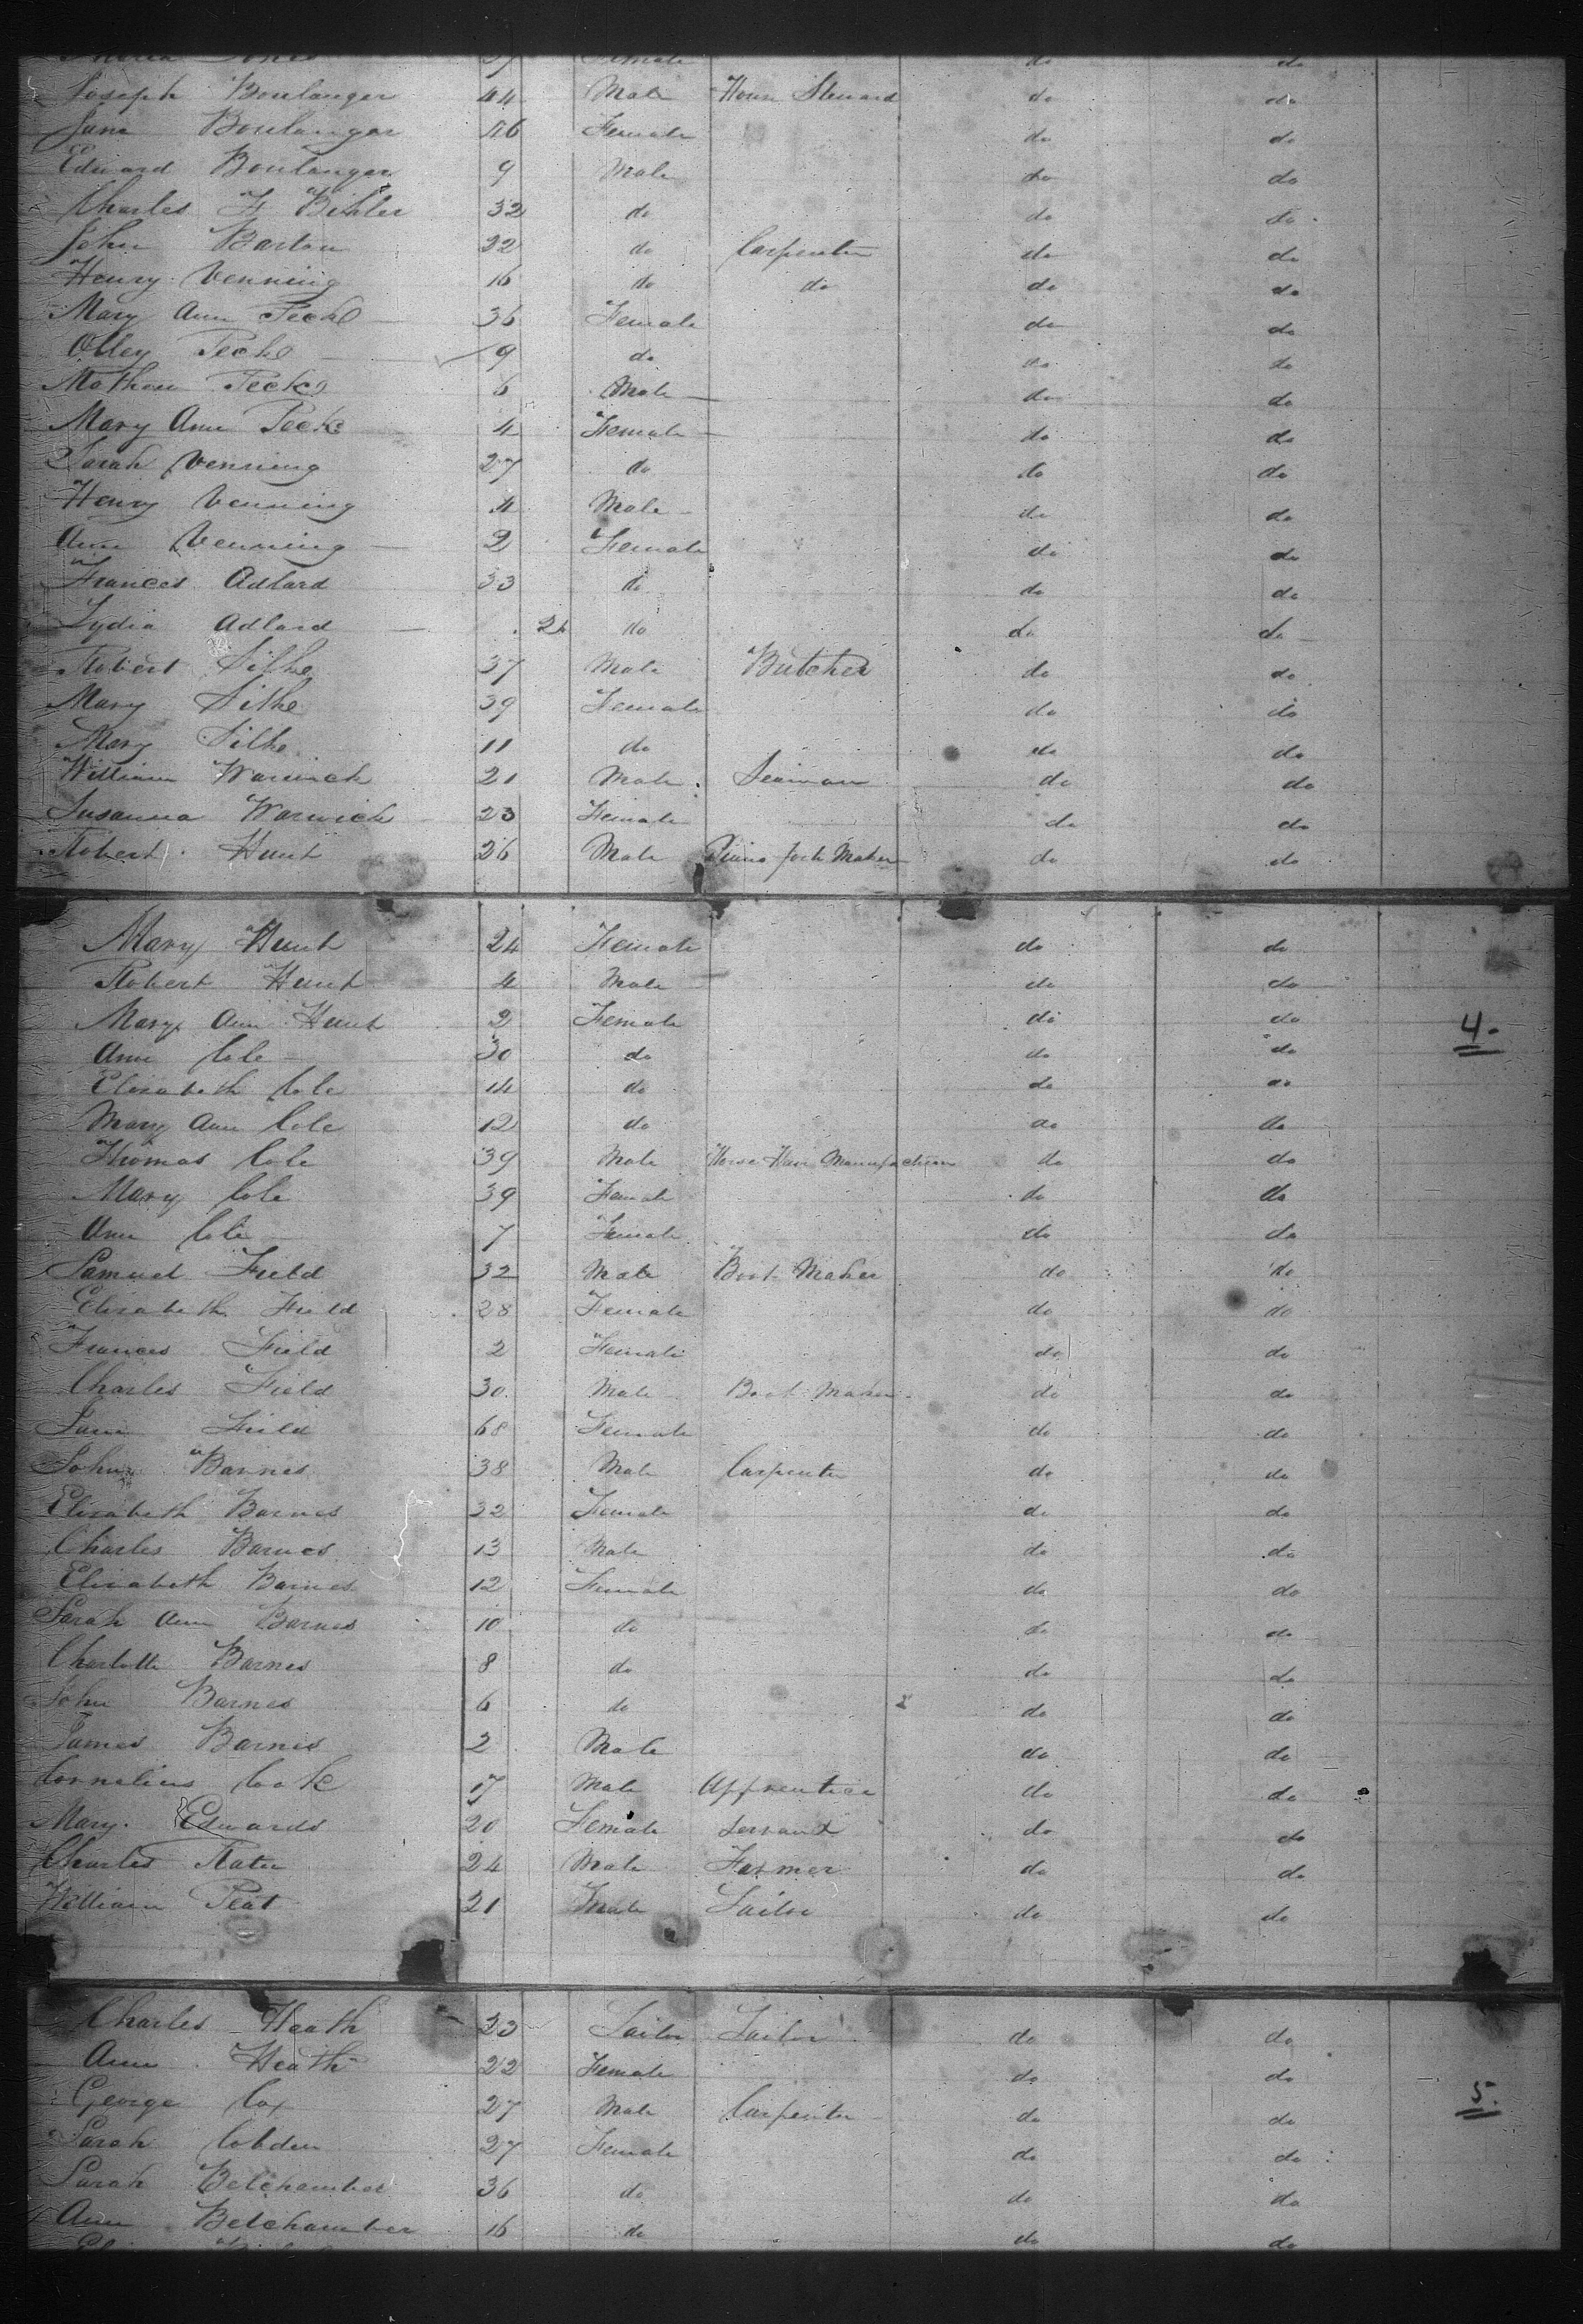 Jones Female do do
Joseph Boulanger 44 Male House Steward do do
Jane Boulanger 46 Female do do
Edward Boulanger 9 Male do do
Charles F Bihler 32 do do do
John Barton 32 do Carpenter do do
Henry Venning 16 do do do do
Mary Ann Peeke 36 Female do do
Olley Peeke 9 do do do
Mathew Peeke 6 Male do do
Mary Ann Peeke 4 Female do do
Sarah Venning 27 do do do
Henry Venning 4 Male do do
Ann Venning 2 Female do do
Frances Adlard 33 do do do
Lydia Adlard do do do
Robert Silke 37 Male Butcher do do
Mary Silke 39 Female do do
Mary Silke 11 do do do
William Warwick 21 Male Seaman do do
Susanna Warwick 23 Female do do
Robert Hunt 26 Male Piano forte Maker do do
Mary Hunt 24 Female do do
Robert Hunt 4 Male do do
Mary Ann Hunt 2 Female do do
4.
Ann Cole 30 do do do
Elizabeth Cole 14 do do do
Mary Ann Cole 12 do do do
Thomas Cole 39 Male Horse Hair Manufacturer do do
Mary Cole 39 Female do do
Ann Cole 7 Female do do
Samuel Field 32 Male Boot Maker do do
Elizabeth Field 28 Female do do
Frances Field 2 Female do do
Charles Field 30 Male Boot Maker do do
Jane Field 68 Female do do
John Barnes 38 Male Carpenter do do
Elizabeth Barnes 32 Female do do
Charles Barnes 13 Male do do
Elizabeth Barnes 12 Female do do
Sarah Ann Barnes 10 do do do
Charlotte Barnes 8 do do do
John Barnes 6 do do do
James Barnes 2 Male do do
Cornelius Cook 17 Male Apprentice do do
Mary Edwards 20 Female Servant do do
Charles 24 Male Farmer do do
William Peat 21 Male Sailor do do
Charles Heath 23 Sailor Sailor do do
Ann Heath 22 Female do do
George Cox 27 Male Carpenter do do
5.
Sarah Cobden 27 Female do do
Sarah Belchamber 36 do do do
Ann Belchamber 16 do do do